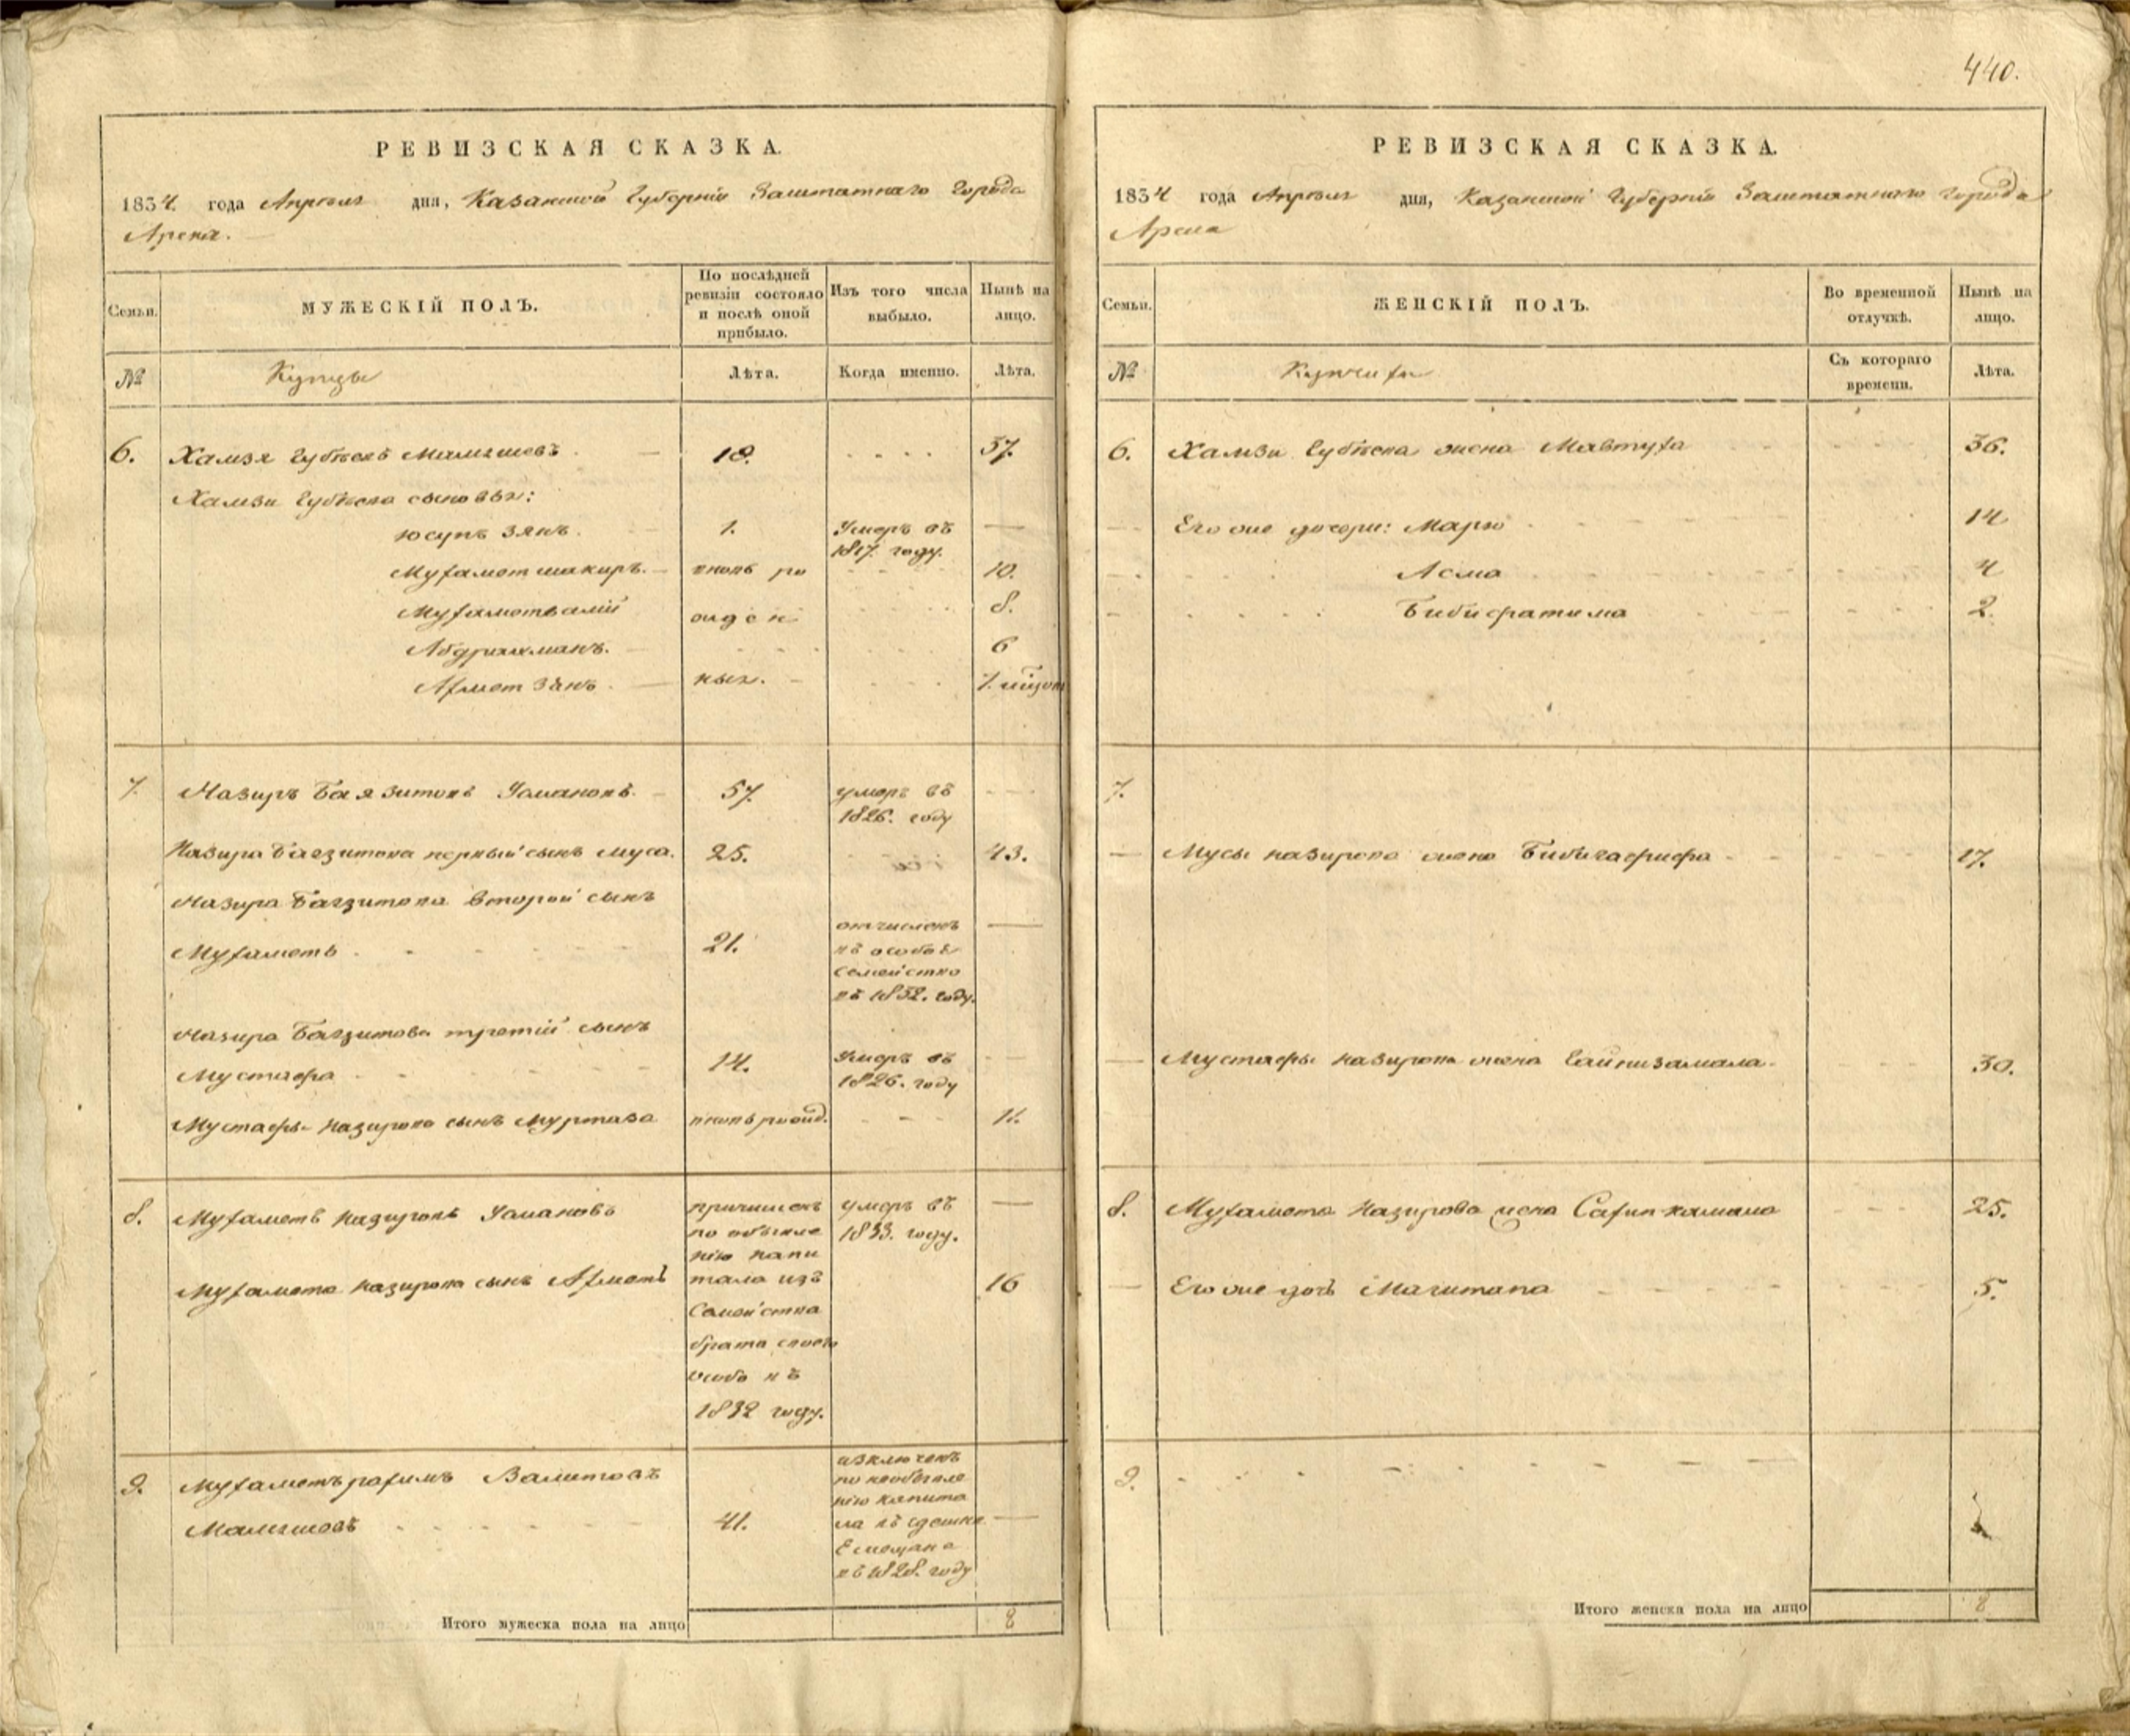 440.
РЕВИЗСКАЯ СКАЗКА.
1834 года Апреля дня, Казанской Губерніи Заштатнаго Города
Арска.
Семьи.
МУЖЕСКІЙ ПОЛЪ.
По послѣдней ревизіи состояло и послѣ оной прибыло.
Изъ того числа выбыло.
Нынѣ на лицо.
№
Купцы
Лѣта.
Когда именно.
Лѣта.
6. Хамзя Губѣевъ Мамяшевъ 18. 37.
Хамзи Губѣева сыновья:
Юсупъ Зянъ. 1. Умеръ въ
1817. году.
Мухаметшакиръ. вновь ро 10.
Мухаметвалій ожден 8.
Абдрахманъ. 6
Ахметзянъ. ныя.
7. Назиръ Баязитовъ Усмановъ. 57. умеръ въ
1826. году
Назира Баязитова первый сынъ Муса. 25. 43.
Назира Баязитова второй сынъ
Мухаметъ 21. отчисленъ
въ особое
семейство
въ 1832. году.
Назира Баязитова третій сынъ
Мустафа 14. Умеръ въ
1826. году
Мустафы Назирова сынъ Муртаза вновь рожд. 11.
8. Мухаметъ Назировъ Усмановъ причисленъ умеръ въ
по объявле 1833. году.
нію капи
Мухамета Назирова сынъ Ахметъ тала изъ 16
Семейства
брата своего
особо въ
1832 году.
9. Мухаметърахимъ Валитовъ
Мамяшевъ 41. изключенъ
по необъявле
нію капита
ла въ здешне
Е мещане
въ 1828. году
Итого мужеска пола на лицо 8
РЕВИЗСКАЯ СКАЗКА.
1834 года Апреля дня, Казанской Губерніи Заштатнаго Города
Арска
Семьи.
ЖЕНСКІЙ ПОЛЪ.
Во временной отлучкѣ.
Нынѣ на лицо.
№
Съ котораго времени.
Лѣта.
6. Хамзи Губѣева жена Мавтуха 36.
Его же дочери: Марю 14
Асма 4
Бибифатима 2.
7.
Мусы Назирова жена Бибигафифа 17.
Мустафы Назирова жена Гайнизамала. 30.
8. Мухамета Назирова жена Сахипкамала 25.
Его же дочь Магитапа 5.
9.
Итого женска пола на лицо 8